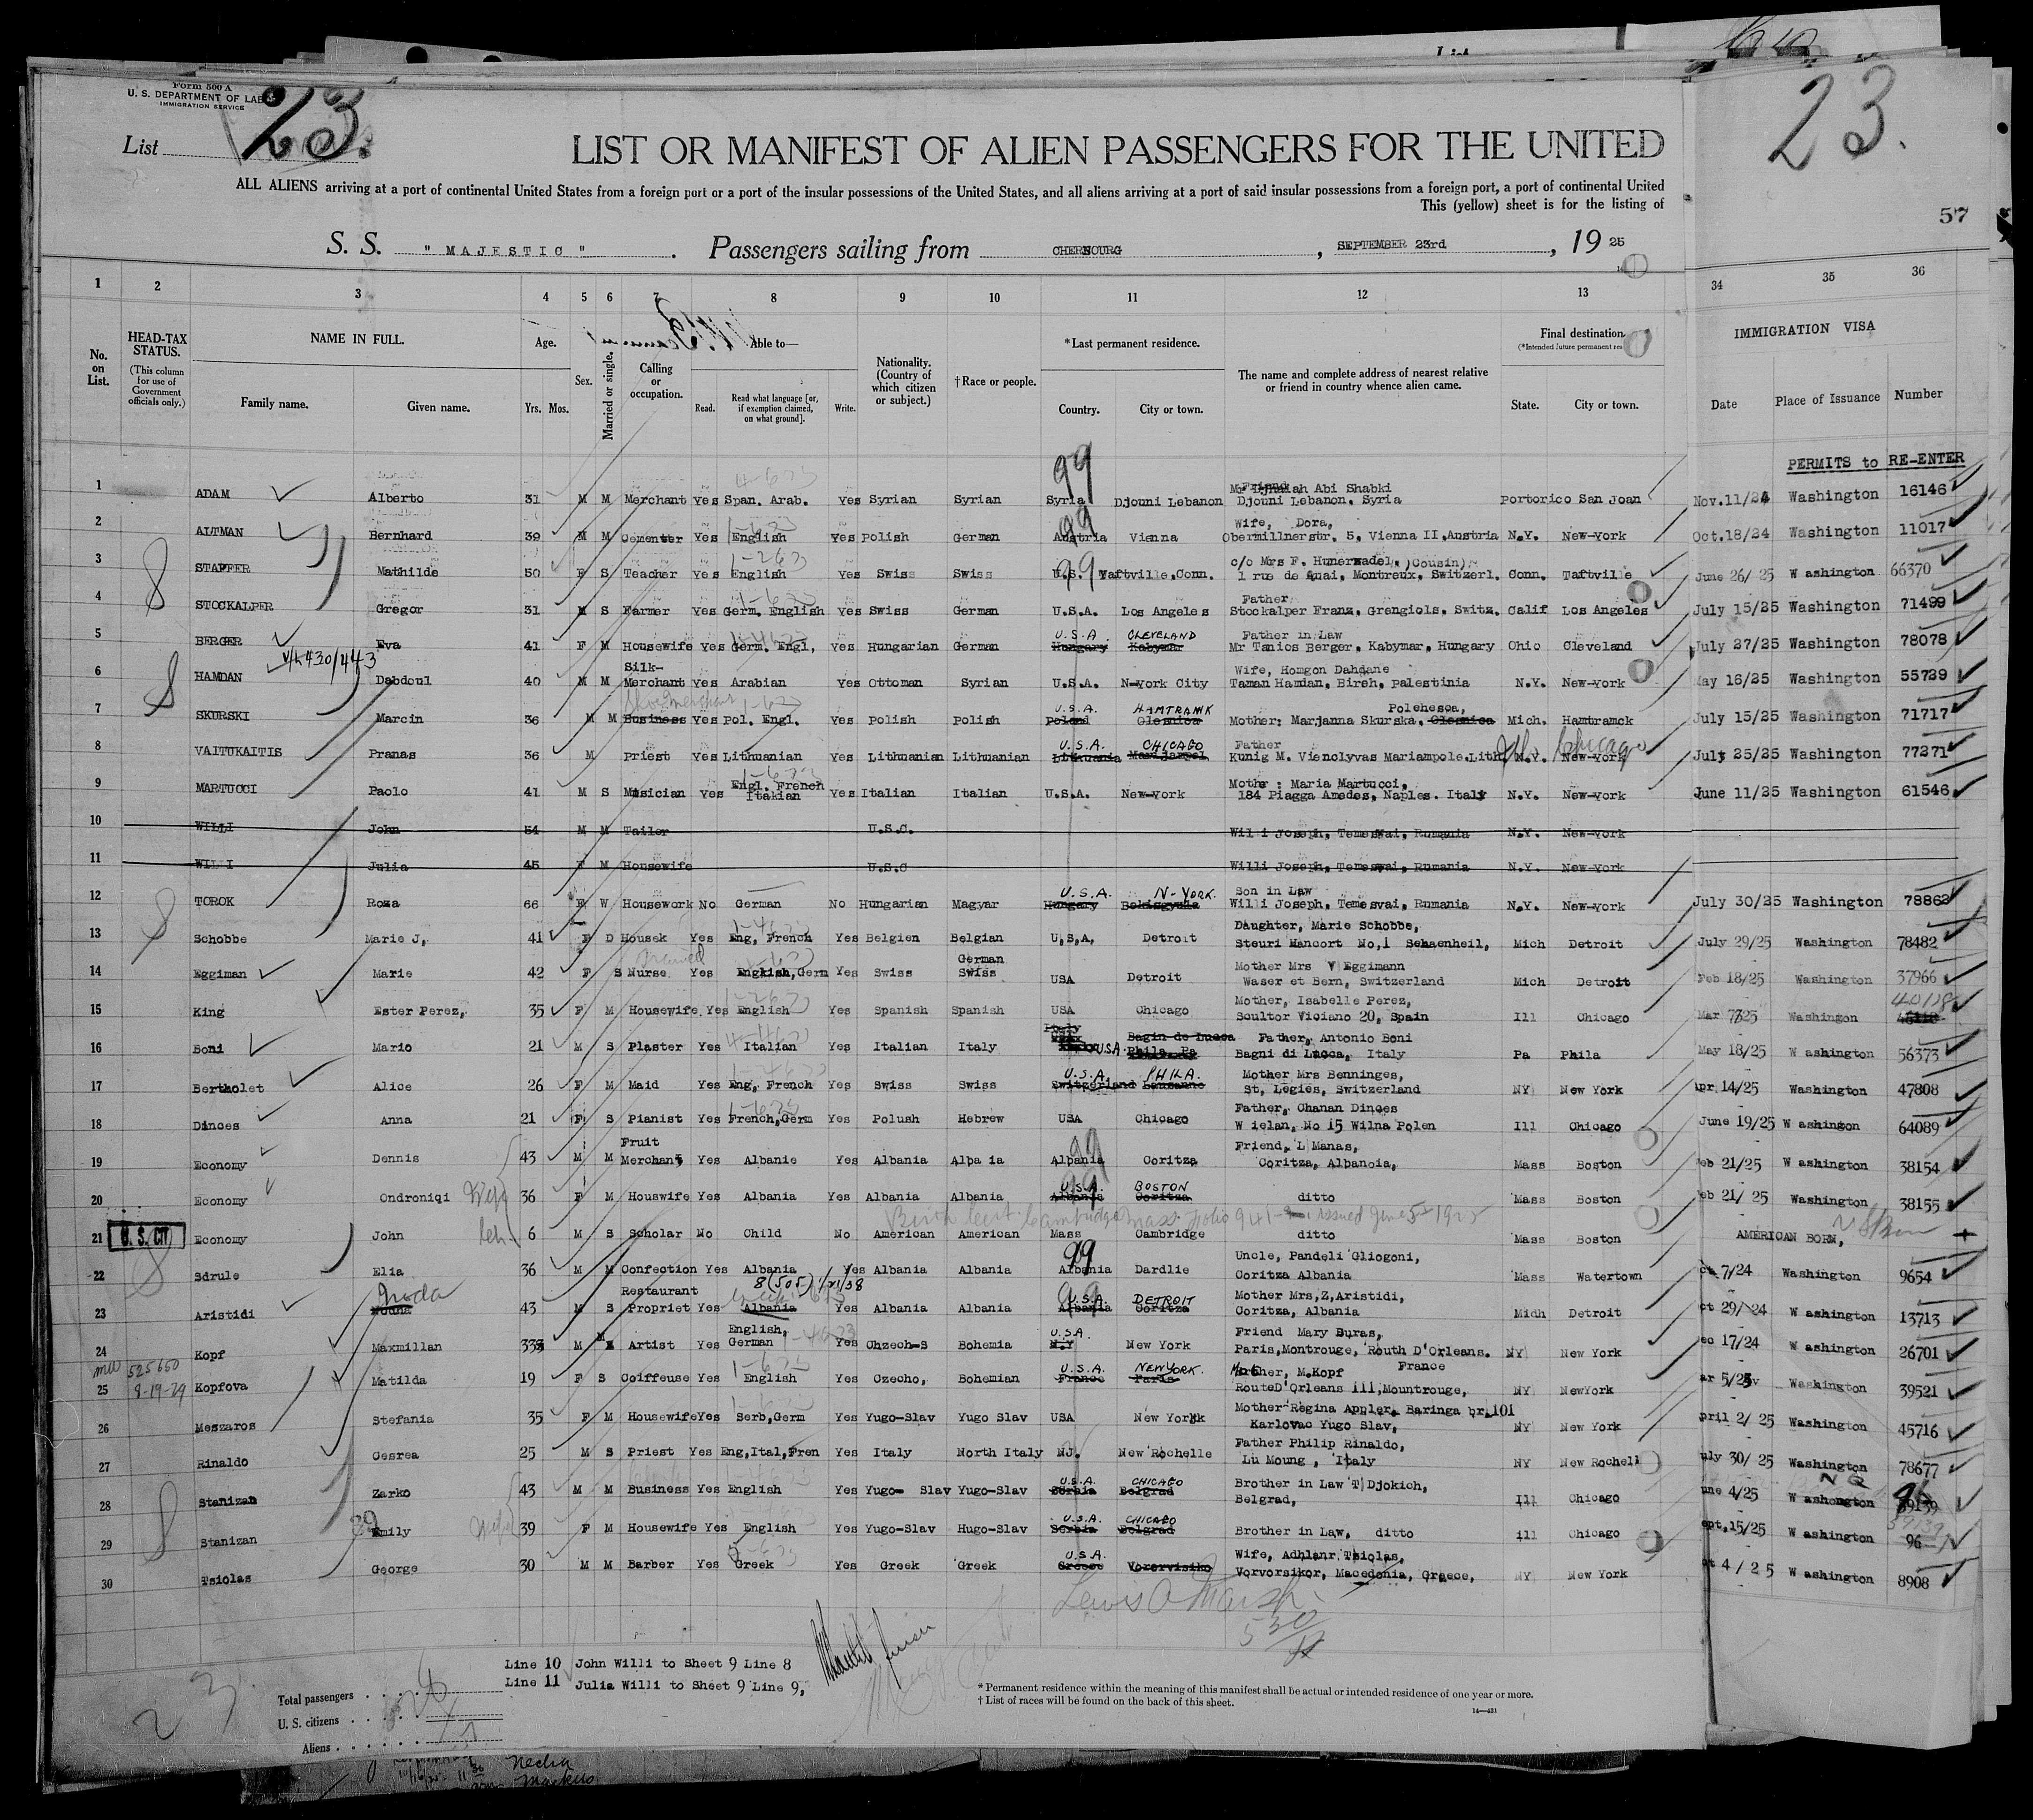 Form 500 A
U. S. DEPARTMENT OF LABOR
IMMIGRATION SERVICE
List 23.
23.
LIST OR MANIFEST OF ALIEN PASSENGERS FOR THE UNITED
ALL ALIENS arriving at a port of continental United States from a foreign port or a port of the insular possessions of the United States, and all aliens arriving at a port of said insular possessions from a foreign port, a port of continental United
This (yellow) sheet is for the listing of
57
S. S. "MAJESTIC". Passengers sailing from CHERBOURG, SEPTEMBER 23rd, 1925
1 2 3 4 5 6 7 8 9 10 11 12 13 34 35 36
No. on List.
HEAD-TAX STATUS.
(This column for use of Government officials only.)
NAME IN FULL.
Family name. Given name.
Age.
Yrs. Mos.
Sex.
Married or single.
Calling or occupation.
Able to—
Read. Read what language [or, if exemption claimed, on what ground]. Write.
Nationality. (Country of which citizen or subject.)
†Race or people.
*Last permanent residence.
Country. City or town.
The name and complete address of nearest relative or friend in country whence alien came.
Final destination.
(*Intended future permanent res
State. City or town.
IMMIGRATION VISA
Date Place of Issuance Number
PERMITS to RE-ENTER
1 ADAM Alberto 31 M M Merchant Yes Span. Arab. Yes Syrian Syrian Syria Djouni Lebanon Abi Shabki Djouni Lebanon. Syria Portorico San Joan Nov.11/24 Washington 16146
2 ALTMAN Bernhard 39 M M Cementer Yes English Yes Polish German Austria Vienna Wife, Dora, Obermillnerstr. 5, Vienna II.Austria N.Y. New-York Oct.18/24 Washington 11017
3 STAPFER Mathilde 50 F S Teacher Yes English Yes Swiss Swiss U.S. Taftville,Conn. c/o Mrs F. Hunerwadel, )Cousin) 1 rue de Quai, Montreux, Switzerl. Conn. Taftville June 26/ 25 W ashington 66370
4 STOCKALPER Gregor 31 M S Farmer Yes Germ. English Yes Swiss German U.S.A. Los Angeles Father Stockalper Franz, Grengiols, Switz. Calif Los Angeles July 15/25 Washington 71499
5 BERGER Eva 41 F M Housewife Yes Germ. Engl, Yes Hungarian German U.S.A CLEVELAND Hungary Kabymar Father in Law Mr Tanios Berger, Kabymar, Hungary Ohio Cleveland July 27/25 Washington 78078
430/443
6 HAMDAN Dabdoul 40 M M Silk- Merchant Yes Arabian Yes Ottoman Syrian U.S.A. N-York City Wife, Homgon Dahdane Taman Hamdan, Bireh, Palestinia N.Y. New-York May 16/25 Washington 55729
7 SKURSKI Marcin 36 M M Business Yes Pol. Engl. Yes Polish Polish U.S.A. HAMTRAMK Poland Olesnica Polehesca, Mother: Marjanna Skurska, Olesnica Mich. Hamtramck July 15/25 Washington 71717
8 VAITUKAITIS Pranas 36 M Priest Yes Lithuanian Yes Lithuanian Lithuanian U.S.A. CHICAGO Lithuania Marijampol Father Kunig M. Vienolyvas Mariampole.Lith N.Y. New-York Chicago July 25/25 Washington 77271
9 MARTUCCI Paolo 41 M S Musician Yes Engl. French Itakian Yes Italian Italian U.S.A. New-York Mothe : Maria Martucci, 184 Piagga Amedes, Naples. Italy N.Y. New-York June 11/25 Washington 61546
10 WILLI John 54 M M Tailer U.S.C. Willi Joseph, Temesvai, Rumania N.Y. New-York
11 WILLI Julia 45 F M Housewife U.S.C Willi Joseph, Temesvai, Rumania N.Y. New-York
12 TOROK Roza 66 F W Housework No German No Hungarian Magyar U.S.A. N-YORK. Hungary Bekisgyula Son in Law Willi Joseph, Temesvai, Rumania N.Y. New-York July 30/25 Washington 78862
13 Schobbe Marie J, 41 F D Housek Yes Eng, French Yes Belgien Belgian U,S,A, Detroit Daughter, Marie Schobbe, Steuri Hancort No,1 Schaenheil, Mich Detroit July 29/25 Washington 78482
14 Eggiman Marie 42 F S Trained Nurse Yes English,Germ Yes Swiss German Swiss USA Detroit Mother Mrs V Eggimann Waser et Bern, Switzerland Mich Detroit Feb 18/25 Washington 37966
15 King Ester Perez, 35 F M Housewife Yes English Yes Spanish Spanish USA Chicago Mother, Isabelle Perez, Scultor Viciano 20, Spain Ill Chicago Mar 7325 Washingon
16 Boni Mario 21 M S Plaster Yes Italian Yes Italian Italy Italy USA. Bagin de Lucca Phila Pa Father, Antonio Boni Bagni di Lucca, Italy Pa Phila May 18/25 W ashington 56373
17 Bertholet Alice 26 F M Maid Yes Eng, French Yes Swiss Swiss U.S.A. PHILA. Switzerland Lausanne Mother Mrs Benninges, St, Legies, Switzerland NY New York Apr 14/25 Washington 47808
18 Dinces Anna 21 F S Pianist Yes French,Germ Yes Polush Hebrew USA Chicago Father, Chanan Dinces W ielan, No 15 Wilna Polen Ill Chicago June 19/25 W ashington 64089
19 Economy Dennis 43 M M Fruit Merchant Yes Albanie Yes Albania Alba ia Albania Coritza Friend, L Manas, Coritza, Albanoia, Mass Boston eb 21/25 W ashington 38154
20 Economy Ondroniqi Wife 36 F M Houswife Yes Albania Yes Albania Albania U.S.A. BOSTON Albania Coritza ditto Mass Boston eb 21/ 25 Washington 38155
Birth Cert. Cambridge Mass. Folio 941 issued June 5 1925
21 U. S. CIT Economy John 6 M S Scholar No Child No American American Mass Cambridge ditto Mass Boston AMERICAN BORN,
22 Sdrule Elia 36 M M Confection Yes Albania Yes Albania Albania Albania Dardlie Uncle, Pandeli Gliogoni, Coritza Albania Mass Watertown ct 7/24 Washington 9654
8(505) 1/21/38
23 Aristidi 43 M S Restaurant Propriet Yes Albania Yes Albania Albania U.S.A. DETROIT Albania Coritza Mother Mrs,Z,Aristidi, Coritza, Albania Midh Detroit ct 29/ 24 W ashington 13713
24 Kopf Maxmillan M M Artist Yes English, German Yes Chzech-S Bohemia U.S.A. N.Y New York Friend Mary Buras, Paris,Montrouge, Routh D'Orleans. France NY New York ec 17/24 W ashington 26701
525660
8-19-29
25 Kopfova Matilda 19 F S Coiffeuse Yes English Yes Czecho, Bohemian U.S.A. NEWYORK. France Paris Mother, M.Kopf RouteD'Orleans 111,Mountrouge, NY NewYork ar 5/25 Washington 39521
26 Meszaros Stefania 35 F M HousewifeYes Serb,Germ Yes Yugo-Slav Yugo Slav USA New York Mother Regina Appler, Baringa br,101 Karlovac Yugo Slav, NY New York pril 2/ 25 Washington 45716
27 Rinaldo Cesrea 25 M S Priest Yes Eng,Ital,Fren Yes Italy North Italy NJ. New Rochelle Father Philip Rinaldo, Lu Moung , Italy NY New Rochell uly 30/ 25 Washington 78677
28 Stanizan Zarko 43 M M Business Yes English Yes Yugo- Slav Yugo-Slav U.S.A. CHICAGO Serbia Belgrad Brother in Law T Djokich, Belgrad, Ill Chicago une 4/25 W ashongton 59139
29 Stanizan Emily Wife 39 F M Housewife Yes English Yes Yugo-Slav Hugo-Slav U.S.A. CHICAGO Serbia Belgrad Brother in Law, ditto ill Chicago ept,15/25 W ashington 96
30 Tsiolas George 30 M M Barber Yes Greek Yes Greek Greek U.S.A. Greece Vorervisiko Wife, Adhlanr Tsiolas, Vorvorsikor, Macedonia, Greece, NY New York ct 4 / 2 5 W ashington 8908
Line 10 John Willi to Sheet 9 Line 8
Line 11 Julia Willi to Sheet 9 Line 9,
23
Total passengers
U. S. citizens
Aliens
*Permanent residence within the meaning of this manifest shall be actual or intended residence of one year or more.
†List of races will be found on the back of this sheet.
14—421